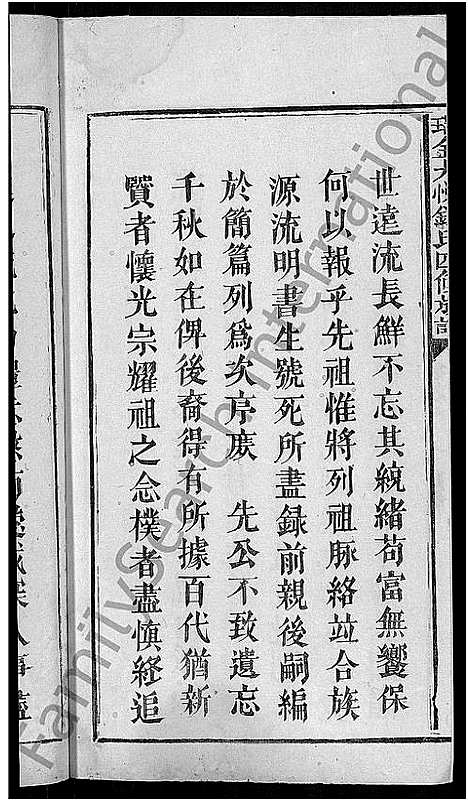 世遠流長鮮不忘其統緒苟富無饗保
何以報乎先祖惟將列祖脉絡竝合族
源流明書生號死所盡録前親後嗣編
於簡篇列爲次序庻　先公不致遺忘
千秋如在俾後裔得有所據百代猶新
賢者懷光宗耀祖之念樸者盡愼終追
FamilySearch International